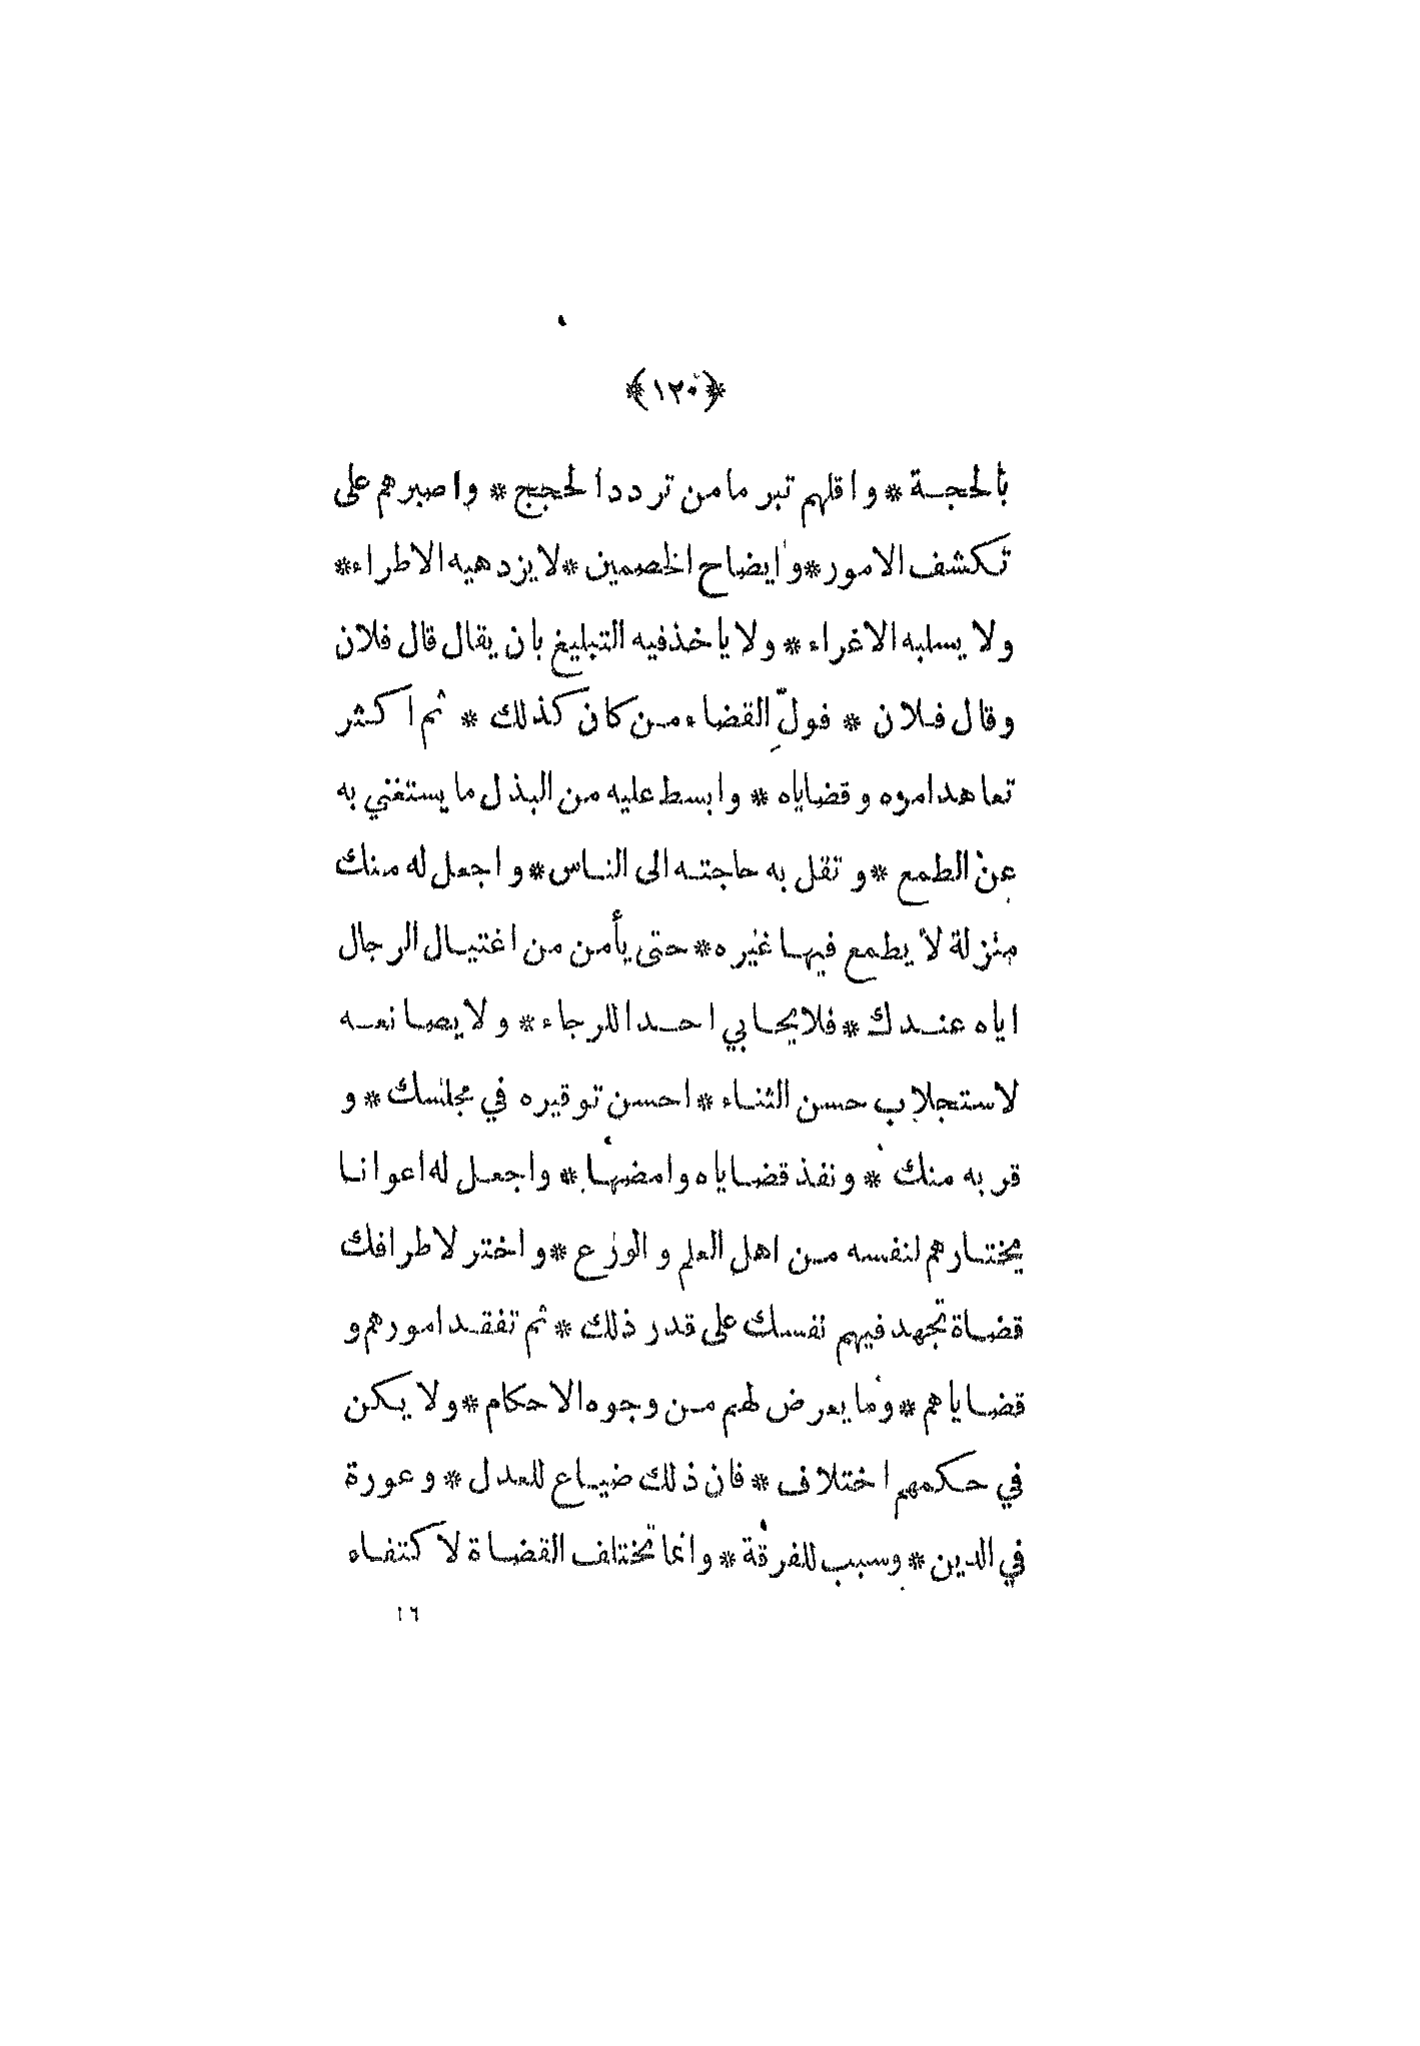 ﴿١٢٠﴾
بالحجة * واقلهم تبرما من تردد الحجج * واصبرهم على
تكشف الامور * وايضاح الخصمين * لا يزدهيه الاطراء *
ولا يسلبه الاغراء * ولا ياخذ فيه التبليغ بان يقال قال فلان
وقال فلان * فولِّ القضاء من كان كذلك * ثم اكثر
تعاهد امره وقضاياه * وابسط عليه من البذل ما يستغني به
عن الطمع * وتقل به حاجته الى الناس * واجعل له منك
منزلة لا يطمع فيها غيره * حتى يأمن من اغتيال الرجال
اياه عندك * فلا يحابي احدا للرجاء * ولا يصانعه
لاستجلاب حسن الثناء * احسن توقيره في مجلسك * و
قربه منك * ونفذ قضاياه وامضها * واجعل له اعوانا
يختارهم لنفسه من اهل العلم والورع * واختر لاطرافك
قضاة تجهد فيهم نفسك على قدر ذلك * ثم تفقد امورهم و
قضاياهم * وما يعرض لهم من وجوه الاحكام * ولا يكن
في حكمهم اختلاف * فان ذلك ضياع للعدل * وعورة
في الدين * وسبب للفرقة * وانما تختلف القضاة لاكتفاء
١٦